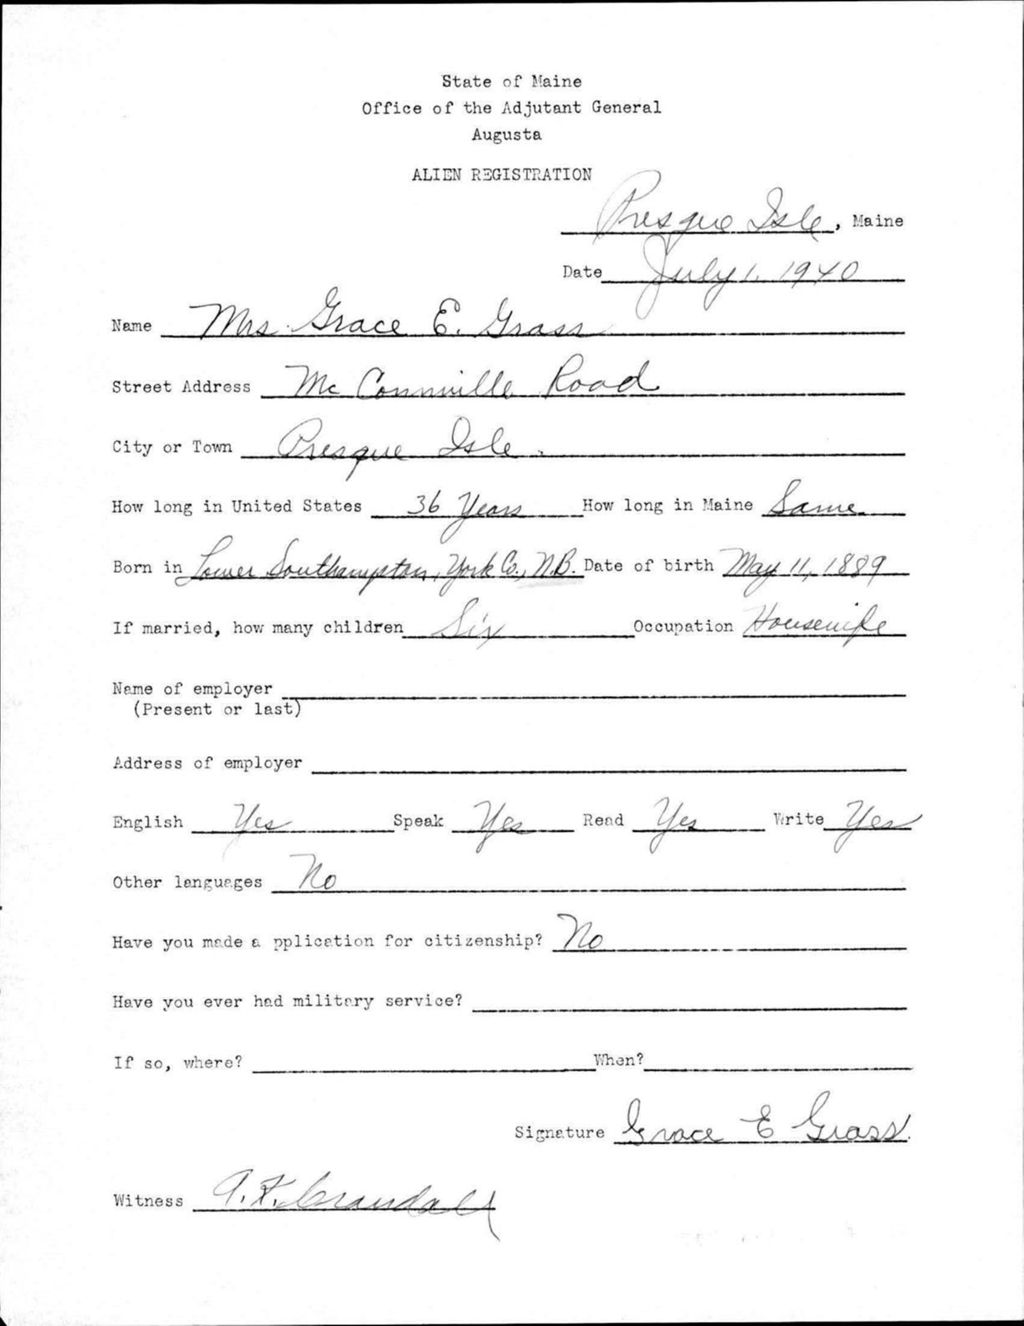 State of Maine
Office of the Adjutant General
Augusta
ALIEN REGISTRATION
Presque Isle, Maine
Date July 1, 1940
Name Mrs. Grace E. Grass
Street Address Mc Connville Road
City or Town Presque Isle.
How long in United States 36 Years How long in Maine Same
Born in Lower Southampton, York Co., N.B. Date of birth May 11, 1889
If married, how many children Six Occupation Housewife
Name of employer
(Present or last)
Address of employer
English Yes Speak Yes Read Yes Write Yes
Other languages No
Have you made a pplication for citizenship? No
Have you ever had military service?
If so, where? When?
Signature Grace E Grass
Witness A. F. Crandall